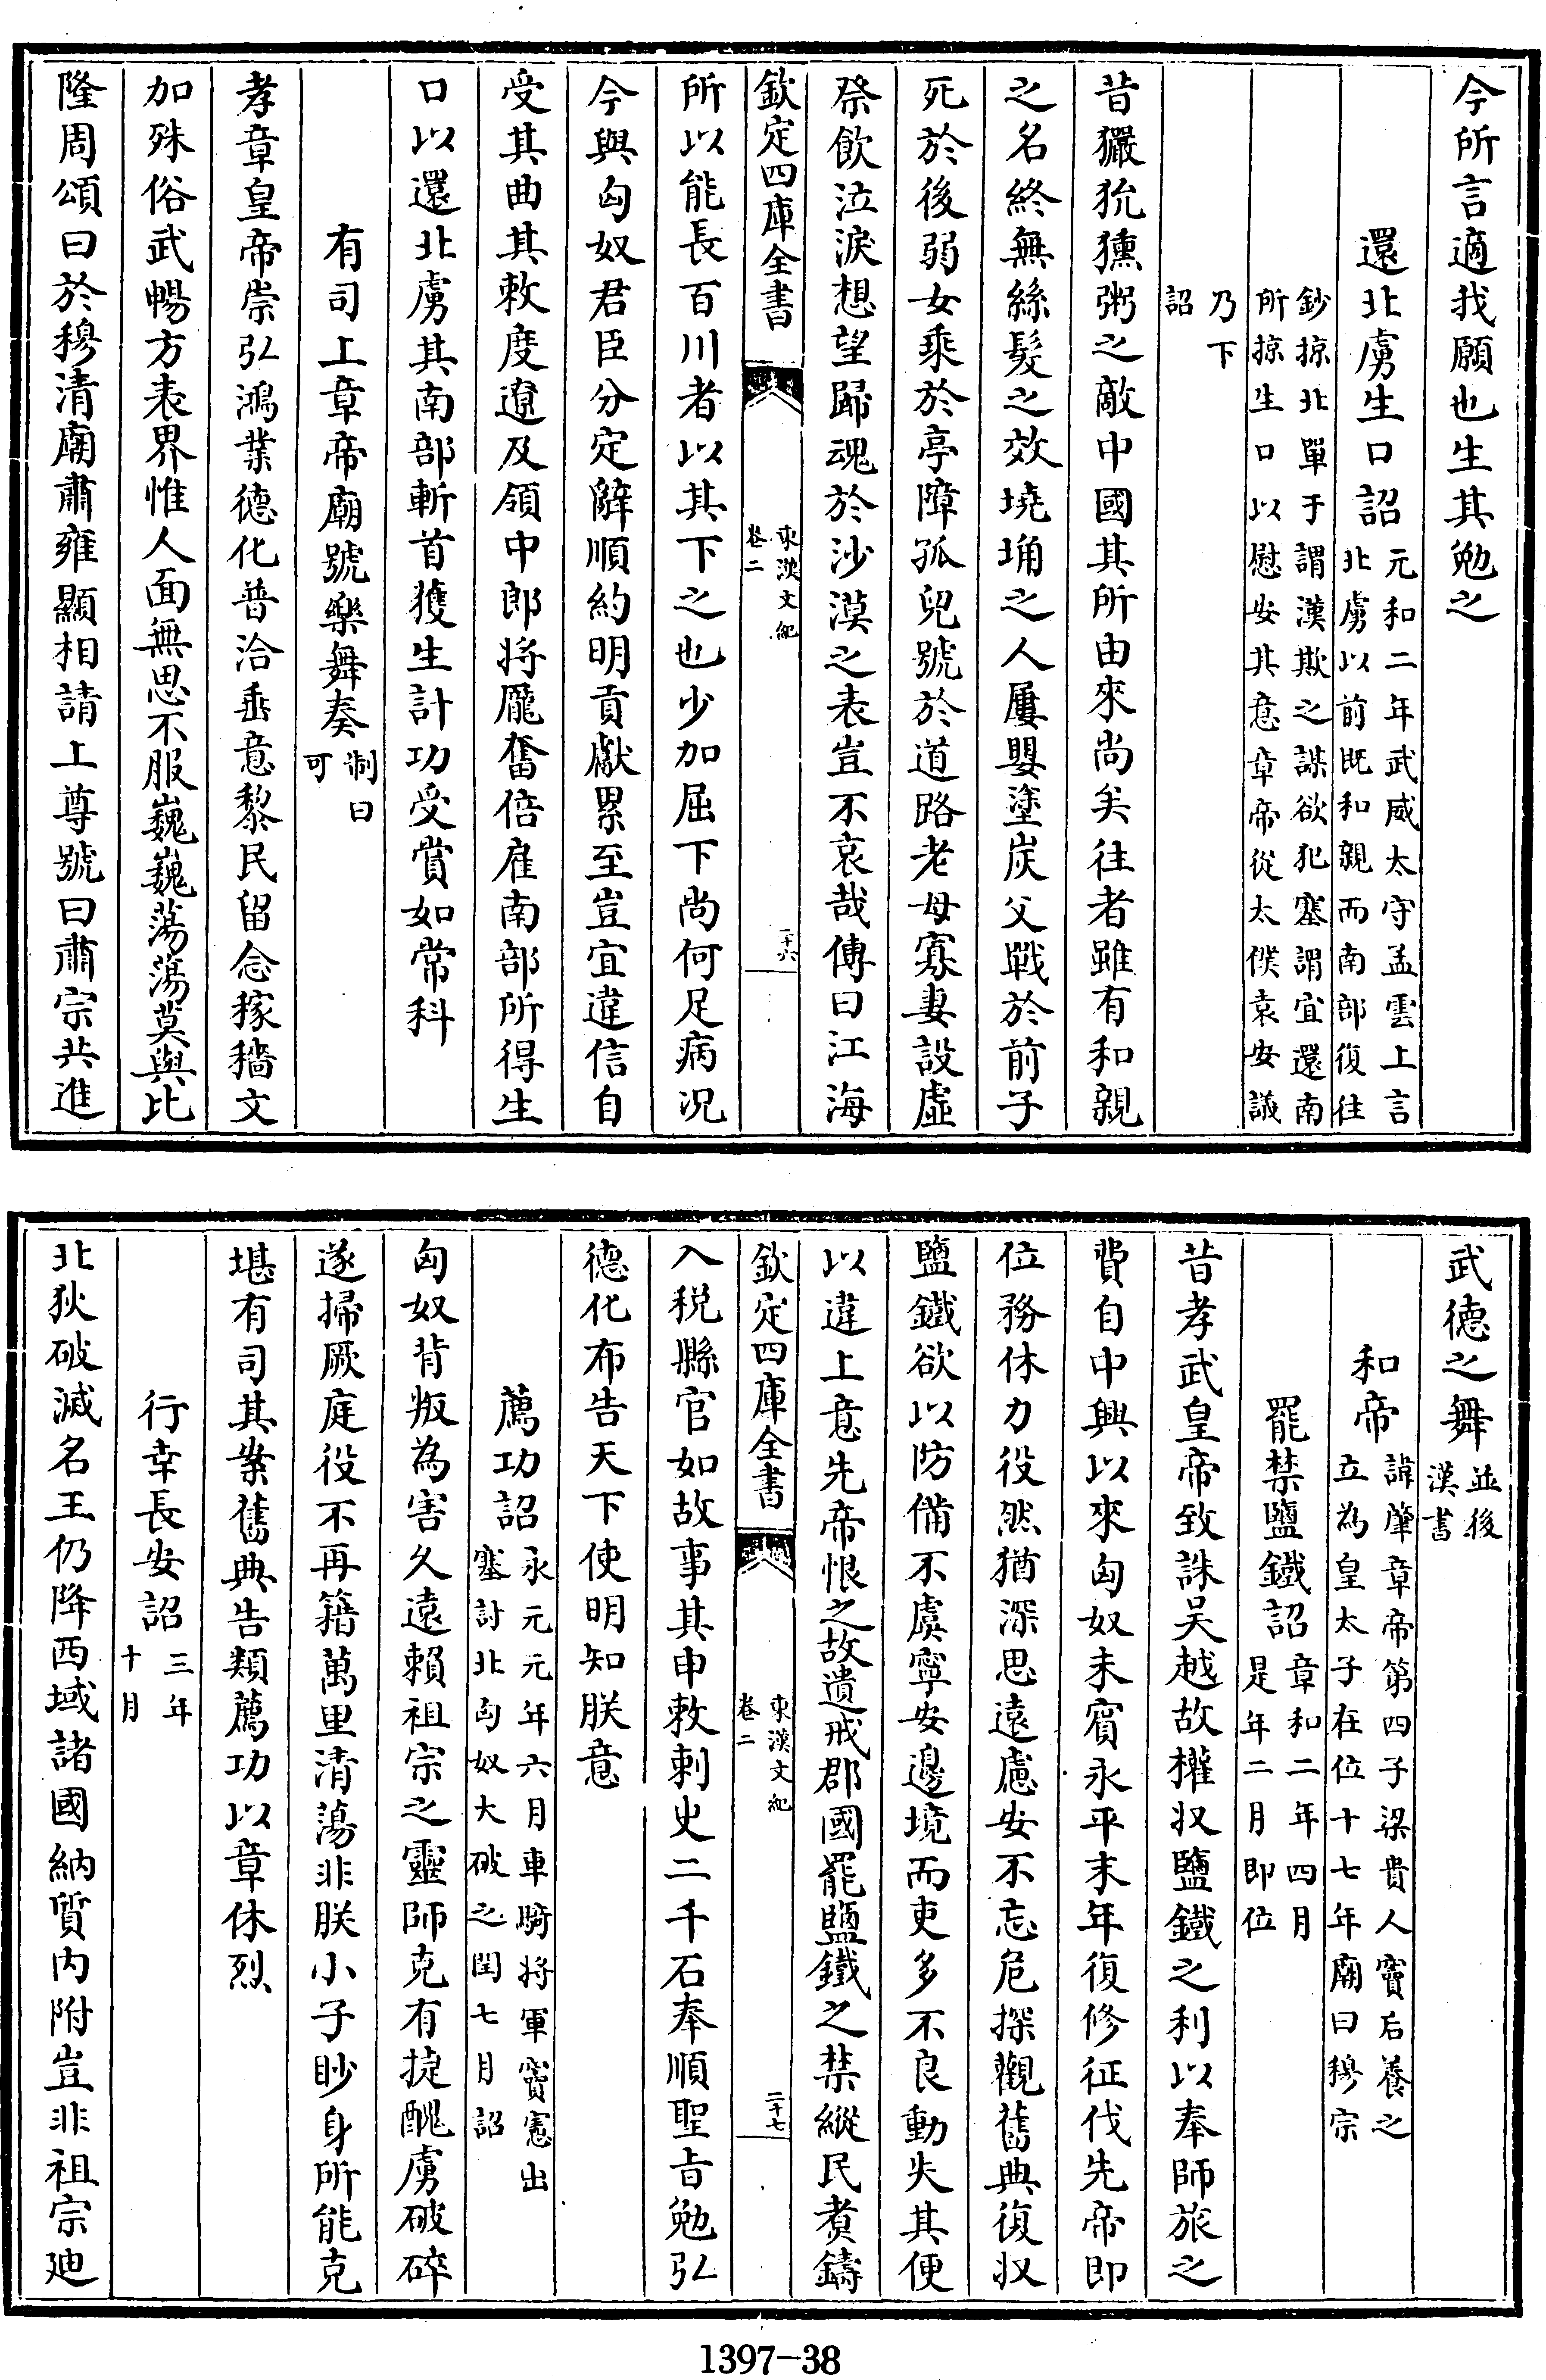 今所言適我願也生其勉之
還北虜生口詔元和二年武威太守孟雲上言北虜以前既和親而南部復往
鈔掠北單于謂漢欺之謀欲犯塞謂宜還南所掠生口以慰安其意章帝從太僕袁安議
乃下詔
昔獫狁獯粥之敵中國其所由來尚矣往者雖有和親
之名終無絲髮之效墝埆之人屢嬰塗炭父戰於前子
死於後弱女乘於亭障孤兒號於道路老母寡妻設虛
祭飲泣淚想望歸魂於沙漠之表豈不哀哉傳曰江海
欽定四庫全書 東漢文紀 卷二 二十六
所以能長百川者以其下之也少加屈下尚何足病況
今與匈奴君臣分定辭順約明貢獻累至豈宜違信自
受其曲其敕度遼及領中郎將龐奮倍雇南部所得生
口以還北虜其南部斬首獲生計功受賞如常科
有司上章帝廟號樂舞奏制曰可
孝章皇帝崇弘鴻業德化普洽垂意黎民留念稼穡文
加殊俗武暢方表界惟人面無思不服巍巍蕩蕩莫與比
隆周頌曰於穆清廟肅雍顯相請上尊號曰肅宗共進
武德之舞並後漢書
和帝諱肇章帝第四子梁貴人竇后養之立為皇太子在位十七年廟曰穆宗
罷禁鹽鐵詔章和二年四月是年二月即位
昔孝武皇帝致誅吳越故權収鹽鐵之利以奉師旅之
費自中興以來匈奴未賓永平末年復修征伐先帝即
位務休力役然猶深思遠慮安不忘危探觀舊典復収
鹽鐵欲以防備不虞寧安邊境而吏多不良動失其便
以違上意先帝恨之故遺戒郡國罷鹽鐵之禁縱民煑鑄
欽定四庫全書 東漢文紀 卷二 二十七
入稅縣官如故事其申敕刺史二千石奉順聖旨勉弘
德化布告天下使明知朕意
薦功詔永元元年六月車騎將軍竇憲出塞討北匈奴大破之閏七月詔
匈奴背叛為害久遠賴祖宗之靈師克有捷醜虜破碎
遂掃厥庭役不再籍萬里清蕩非朕小子眇身所能克
堪有司其案舊典告類薦功以章休烈
行幸長安詔三年十月
北狄破滅名王仍降西域諸國納質内附豈非祖宗廸
1397-38